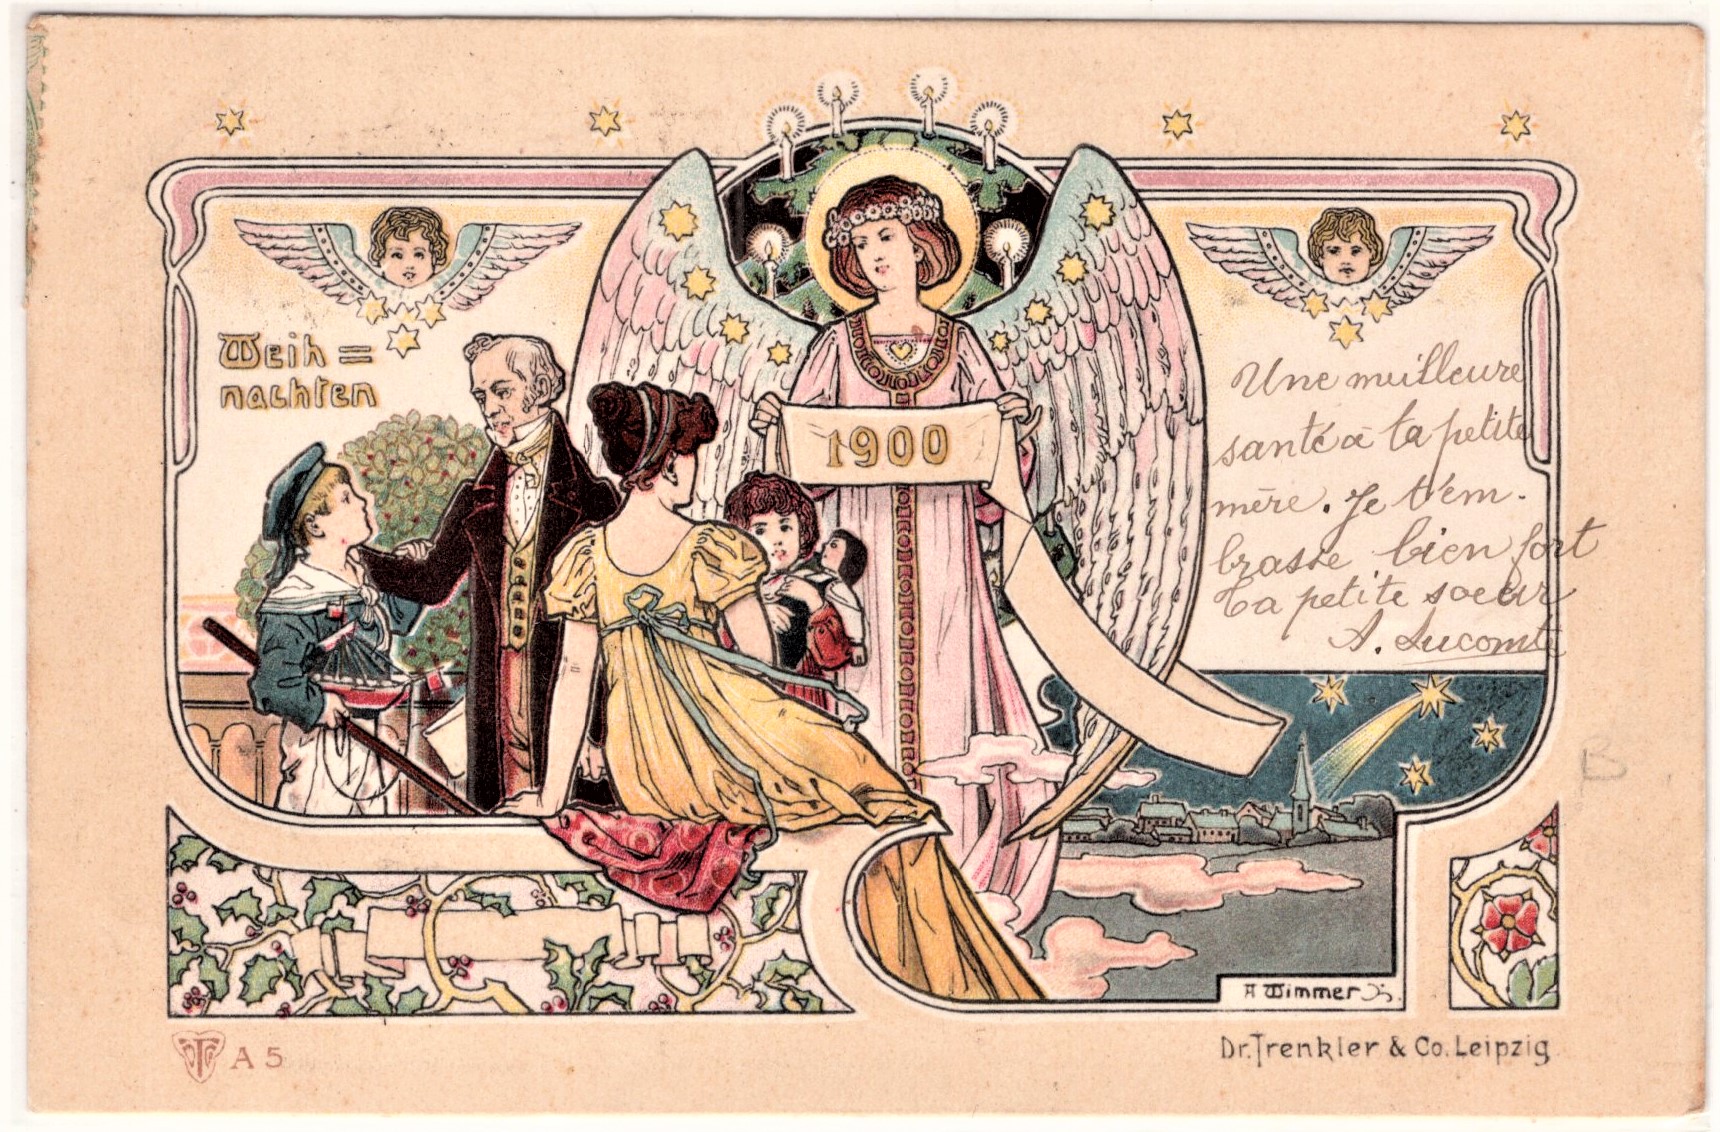 Weih=
nachten
1900
Une meilleure
santé à ta petite
mère. Je t'em-
brasse bien fort
Ta petite soeur
A. Lucomte
A Wimmer
A 5
Dr. Trenkler & Co. Leipzig
B